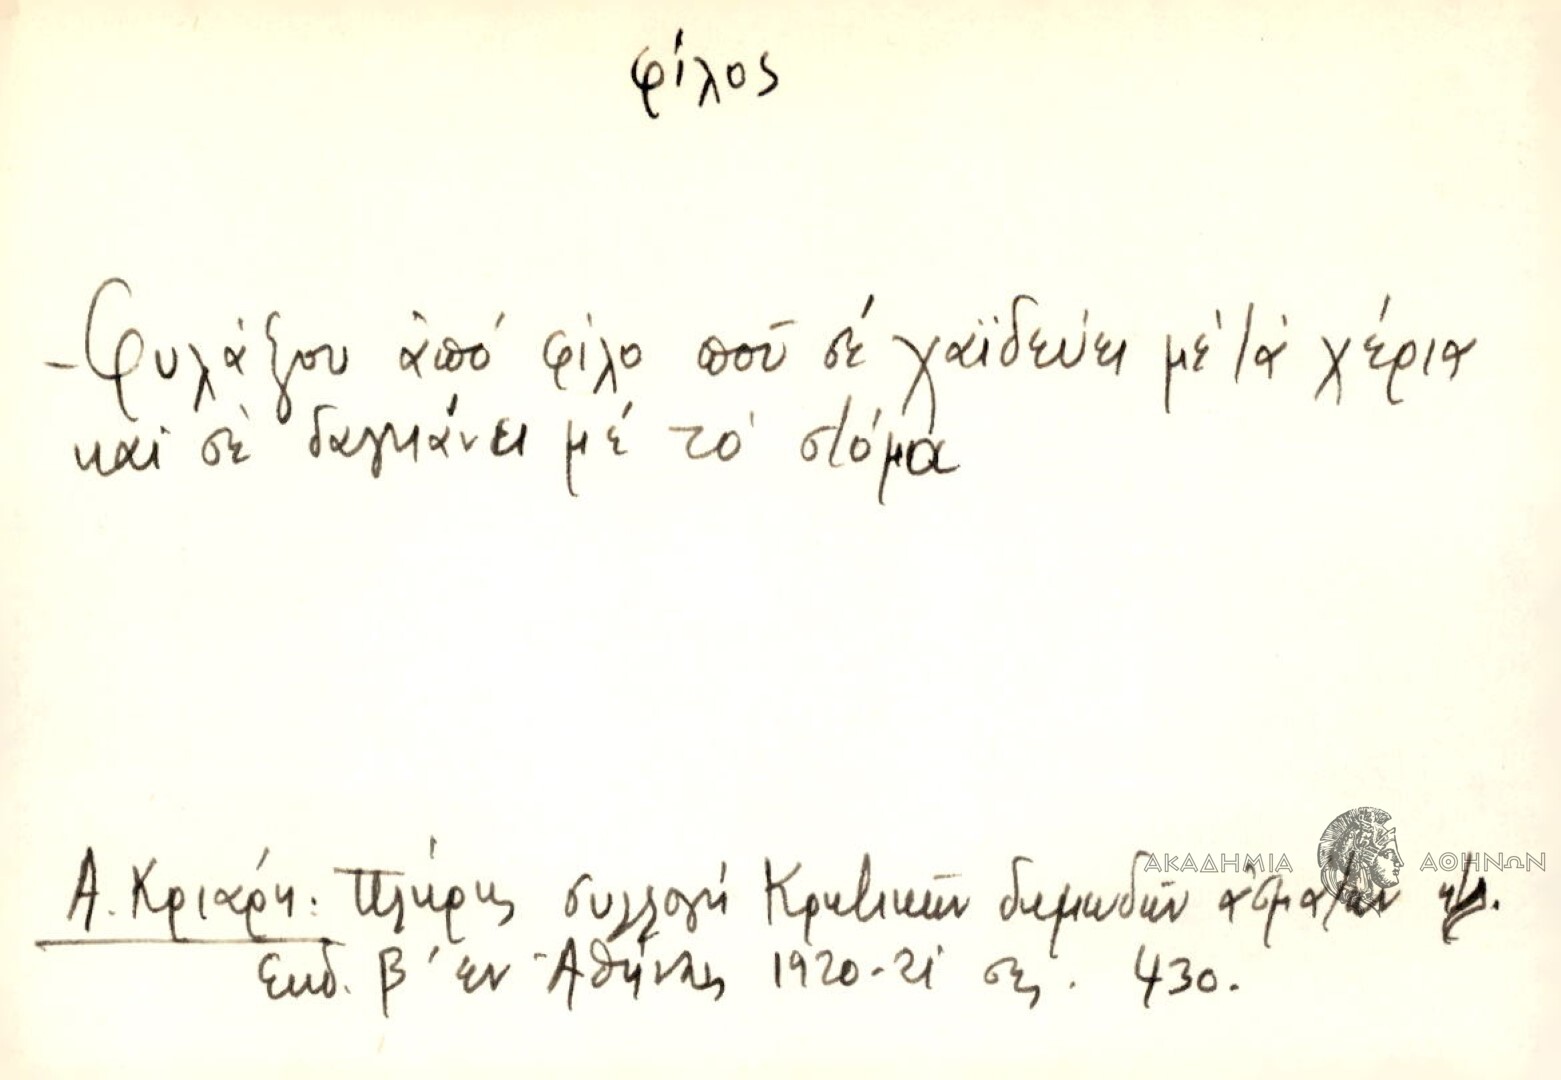 φίλος
- Φυλάξου ἀπό φίλο πού σέ χαϊδεύει μέ τά χέρια
καί σὲ δαγκάνει μέ τό στόμα
Α. Κριάρη: Πλήρης συλλογή Κρητικῶν δημωδῶν ἀσμάτων κτλ.
Εκδ. β' εν Ἀθήναις 1920-21 σελ. 430.
ΑΚΑΔΗΜΙΑ ΑΘΗΝΩΝ